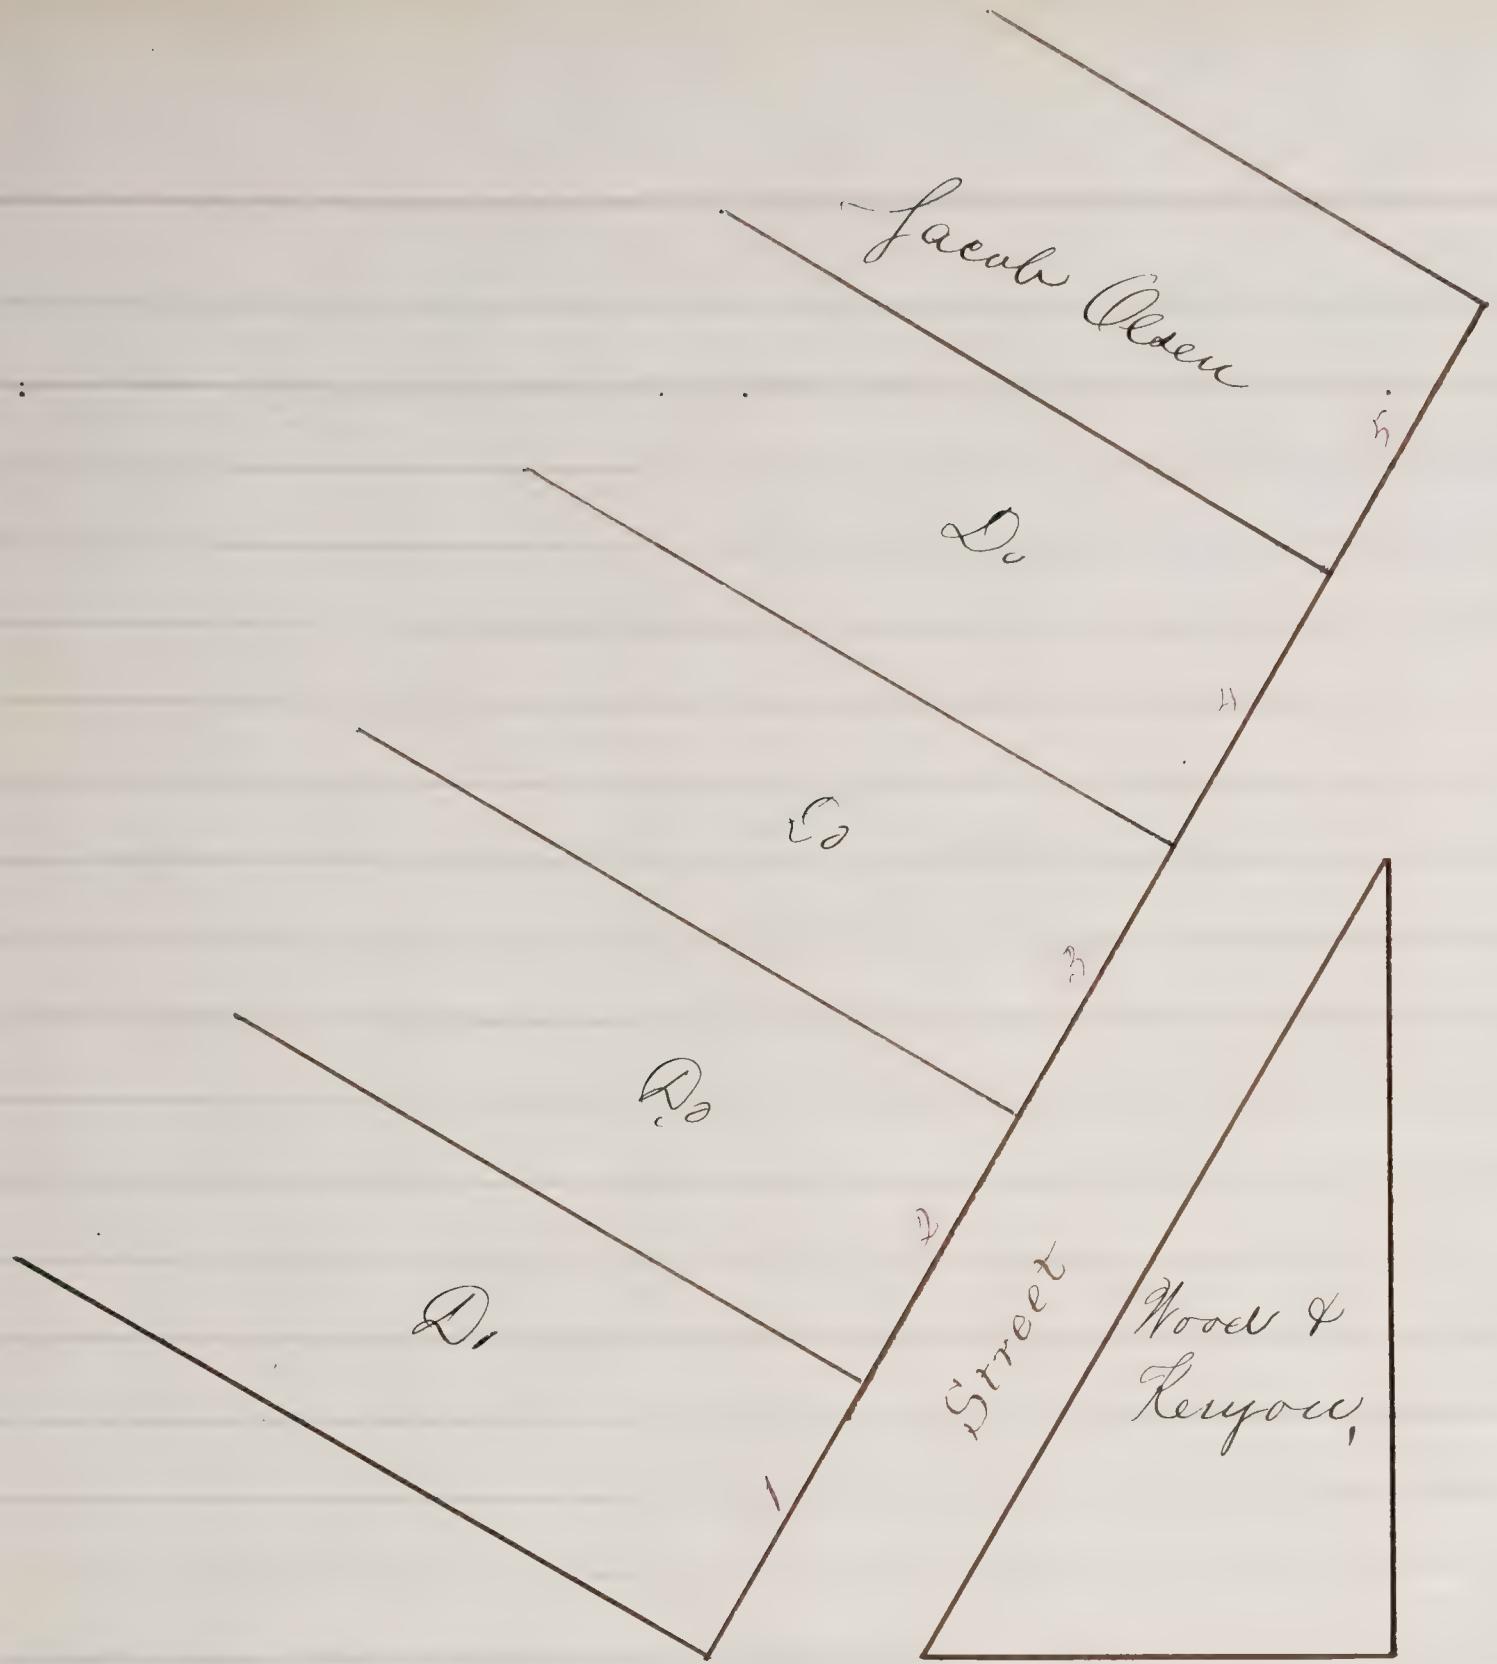 Jacob Olsen
5
Do
4
Do
3
Do
2
Do
1
Street
Wood &
Kenyon,